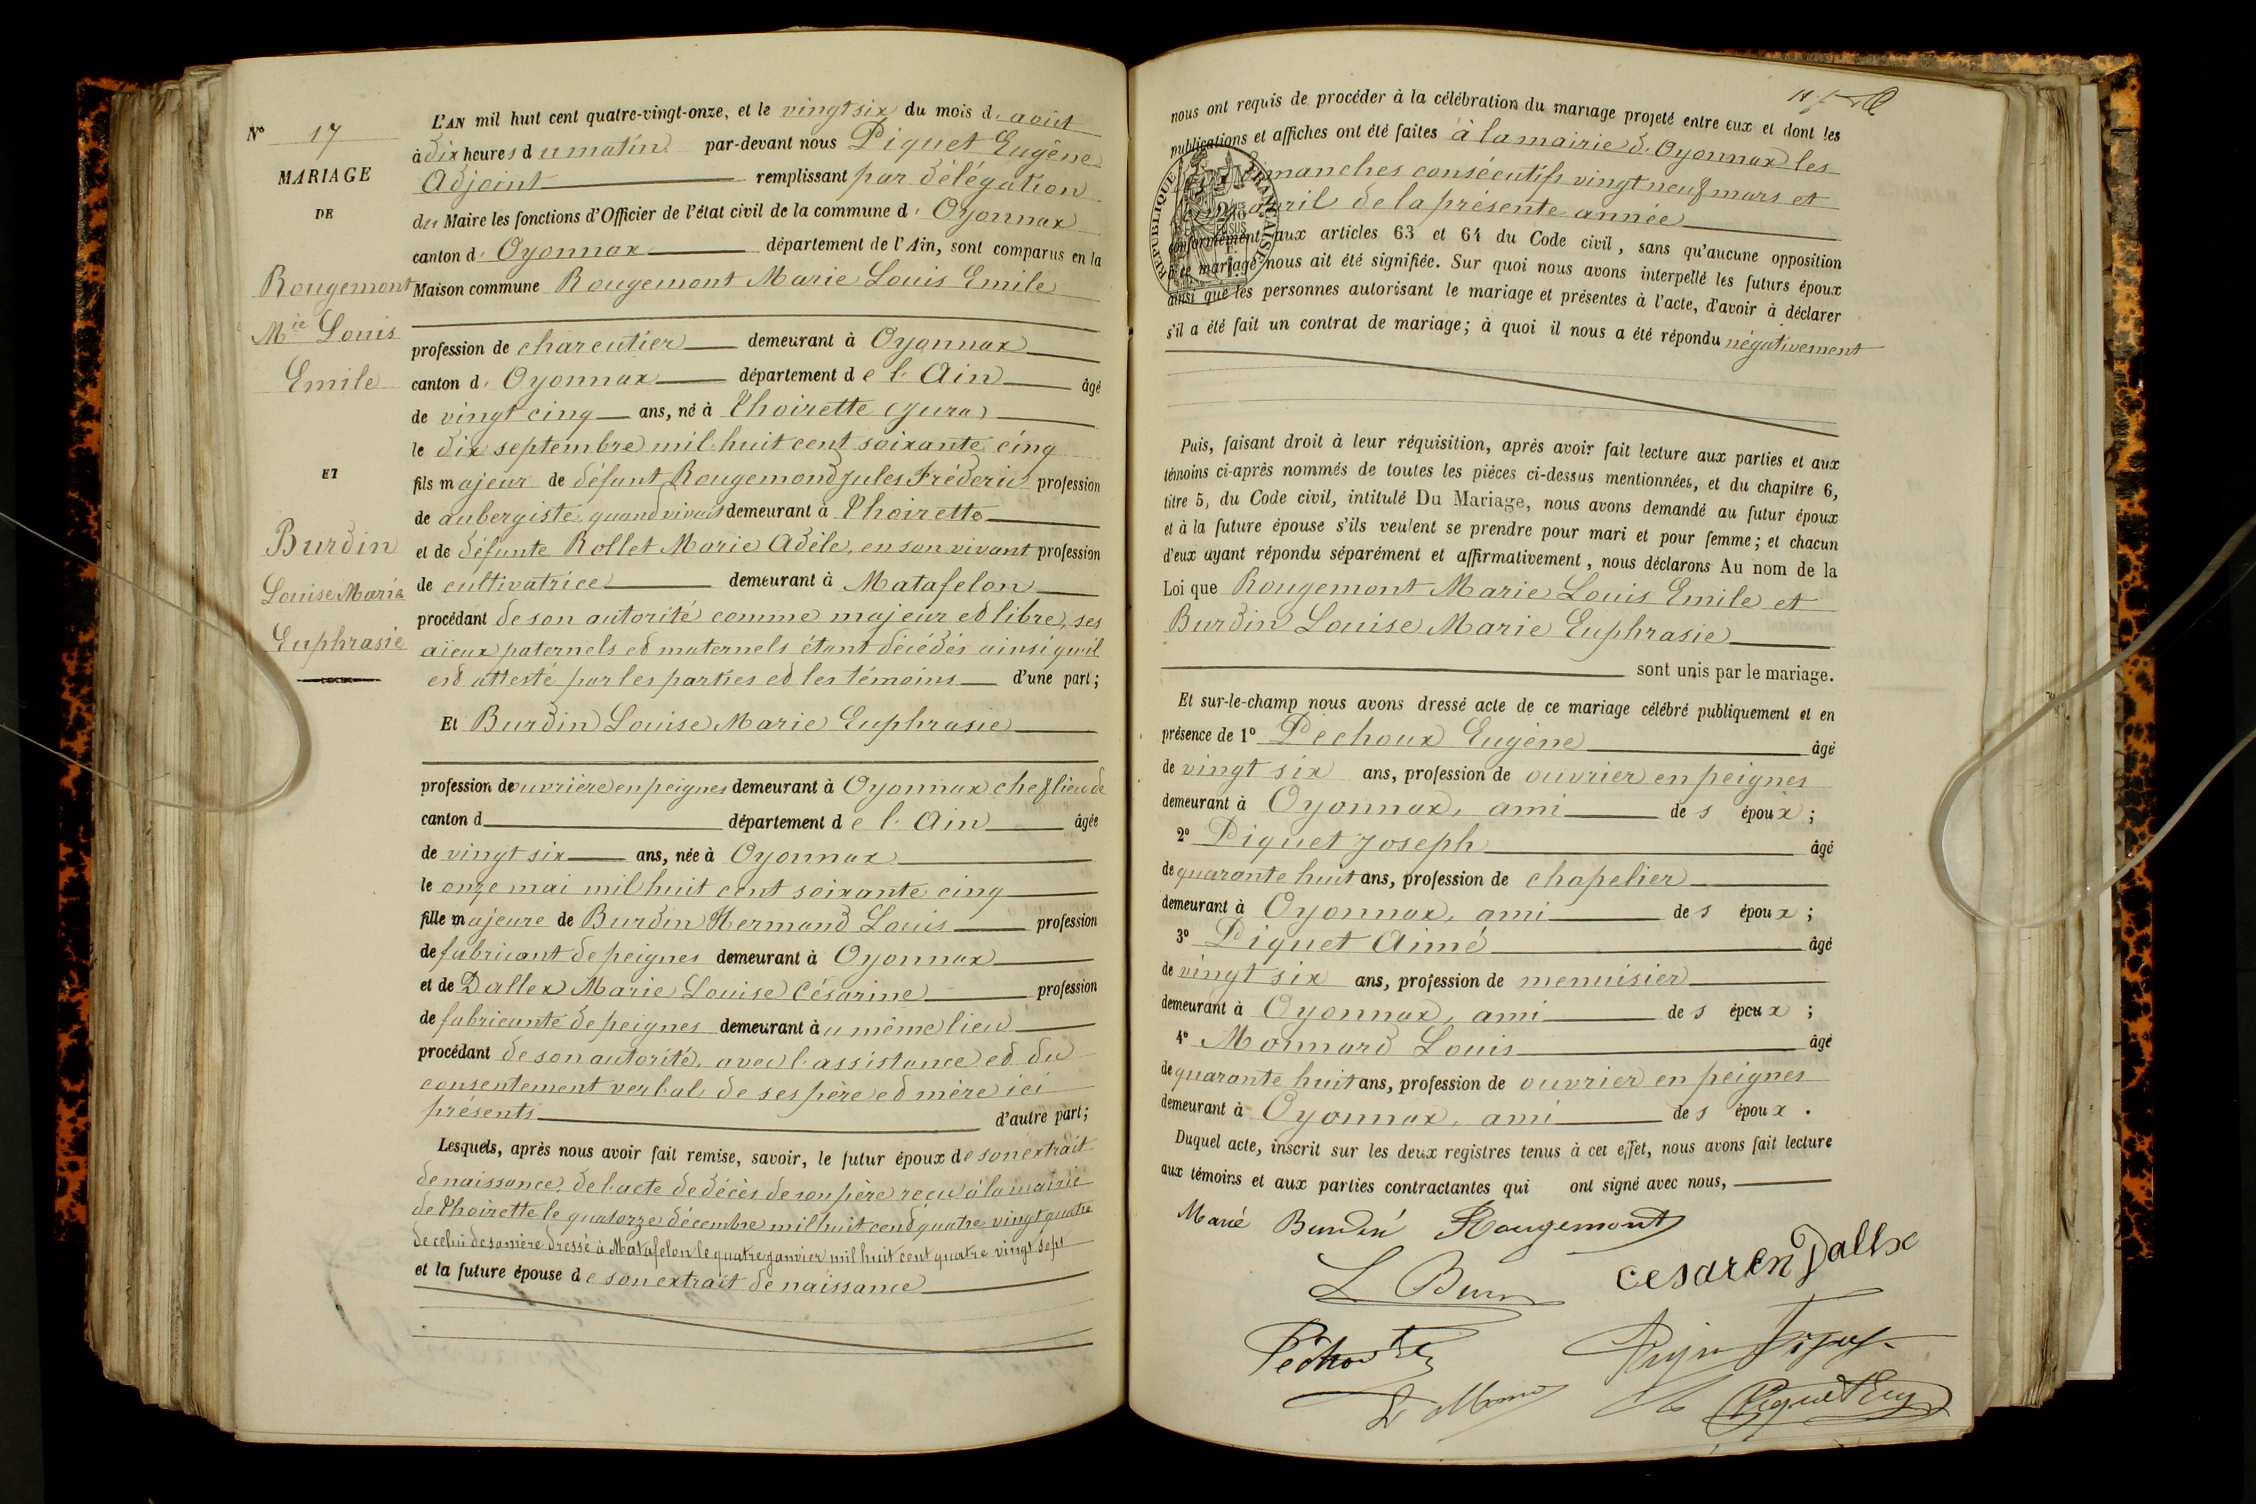 N° 17
MARIAGE
DE
Rougemont
Mie Louis
Emile
ET
Burdin
Louise Marie
Euphrasie
L'AN mil huit cent quatre-vingt-onze, et le vingt six du mois d'août
à dix heures du matin par-devant nous Piquet Eugène
Adjoint remplissant par délégation
du Maire les fonctions d'Officier de l'état civil de la commune d'Oyonnax
canton d'Oyonnax département de l'Ain, sont comparus en la
Maison commune Rougemont Marie Louis Emile
profession de charcutier demeurant à Oyonnax
canton d'Oyonnax département de l'Ain âgé
de vingt cinq ans, né à Thoirette (Jura)
le dix septembre mil huit cent soixante cinq
fils majeur de défunt Rougemond Jules Fréderic profession
de aubergiste quand vivait demeurant à Thoirette
et de défunte Rollet Marie Adèle, en son vivant profession
de cultivatrice demeurant à Matafelon
procédant de son autorité comme majeur et libre, ses
aïeux paternels et maternels étant décédés ainsi qu'il
est attesté par les parties et les témoins d'une part;
Et Burdin Louise Marie Euphrasie
profession de ouvrière en peignes demeurant à Oyonnax chef lieu de
canton d département de l'Ain âgée
de vingt six ans, née à Oyonnax
le onze mai mil huit cent soixante cinq
fille majeure de Burdin Hermand Louis profession
de fabricant de peignes demeurant à Oyonnax
et de Dallex Marie Louise Césarine profession
de fabricante de peignes demeurant au même lieu
procédant de son autorité, avec l'assistance et du
consentement verbal de ses père et mère ici
présents d'autre part;
Lesquels, après nous avoir fait remise, savoir, le futur époux de son extrait
de naissance, de l'acte de décès de son père reçu à la mairie
de Thoirette le quatorze décembre mil huit cent quatre vingt quatre
de celui de sa mère dressé à Matafelon le quatre janvier mil huit cent quatre vingt sept
et la future épouse de son extrait de naissance
nous ont requis de procéder à la célébration du mariage projeté entre eux et dont les
publications et affiches ont été faites à la mairie d'Oyonnax les
dimanches consécutifs vingt neuf mars et
avril de la présente année
conformément aux articles 63 et 64 du Code civil, sans qu'aucune opposition
à ce mariage nous ait été signifiée. Sur quoi nous avons interpellé les futurs époux
ainsi que les personnes autorisant le mariage et présentes à l'acte, d'avoir à déclarer
s'il a été fait un contrat de mariage; à quoi il nous a été répondu négativement
RÉPUBLIQUE FRANÇAISE
Puis, faisant droit à leur réquisition, après avoir fait lecture aux parties et aux
témoins ci-après nommés de toutes les pièces ci-dessus mentionnées, et du chapitre 6,
titre 5, du Code civil, intitulé Du Mariage, nous avons demandé au futur époux
et à la future épouse s'ils veulent se prendre pour mari et pour femme; et chacun
d'eux ayant répondu séparément et affirmativement, nous déclarons Au nom de la
Loi que Rougemont Marie Louis Emile et
Burdin Louise Marie Euphrasie
sont unis par le mariage.
Et sur-le-champ nous avons dressé acte de ce mariage célébré publiquement et en
présence de 1° Péchoux Eugène âgé
de vingt six ans, profession de ouvrier en peignes
demeurant à Oyonnax, ami des époux;
2° Piquet Joseph âgé
de quarante huit ans, profession de chapelier
demeurant à Oyonnax, ami des époux;
3° Piquet Aimé âgé
de vingt six ans, profession de menuisier
demeurant à Oyonnax, ami des époux;
4° Monnard Louis âgé
de quarante huit ans, profession de ouvrier en peignes
demeurant à Oyonnax, ami des époux.
Duquel acte, inscrit sur les deux registres tenus à cet effet, nous avons fait lecture
aux témoins et aux parties contractantes qui ont signé avec nous,
Marie Burdin Rougemont
L Bur
Cesaren Dallx
Péchoux
Piquet Eug